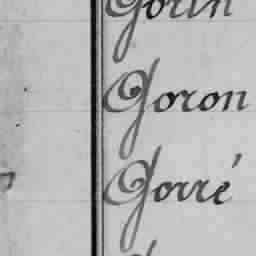 Gorin
Goron
Gorré